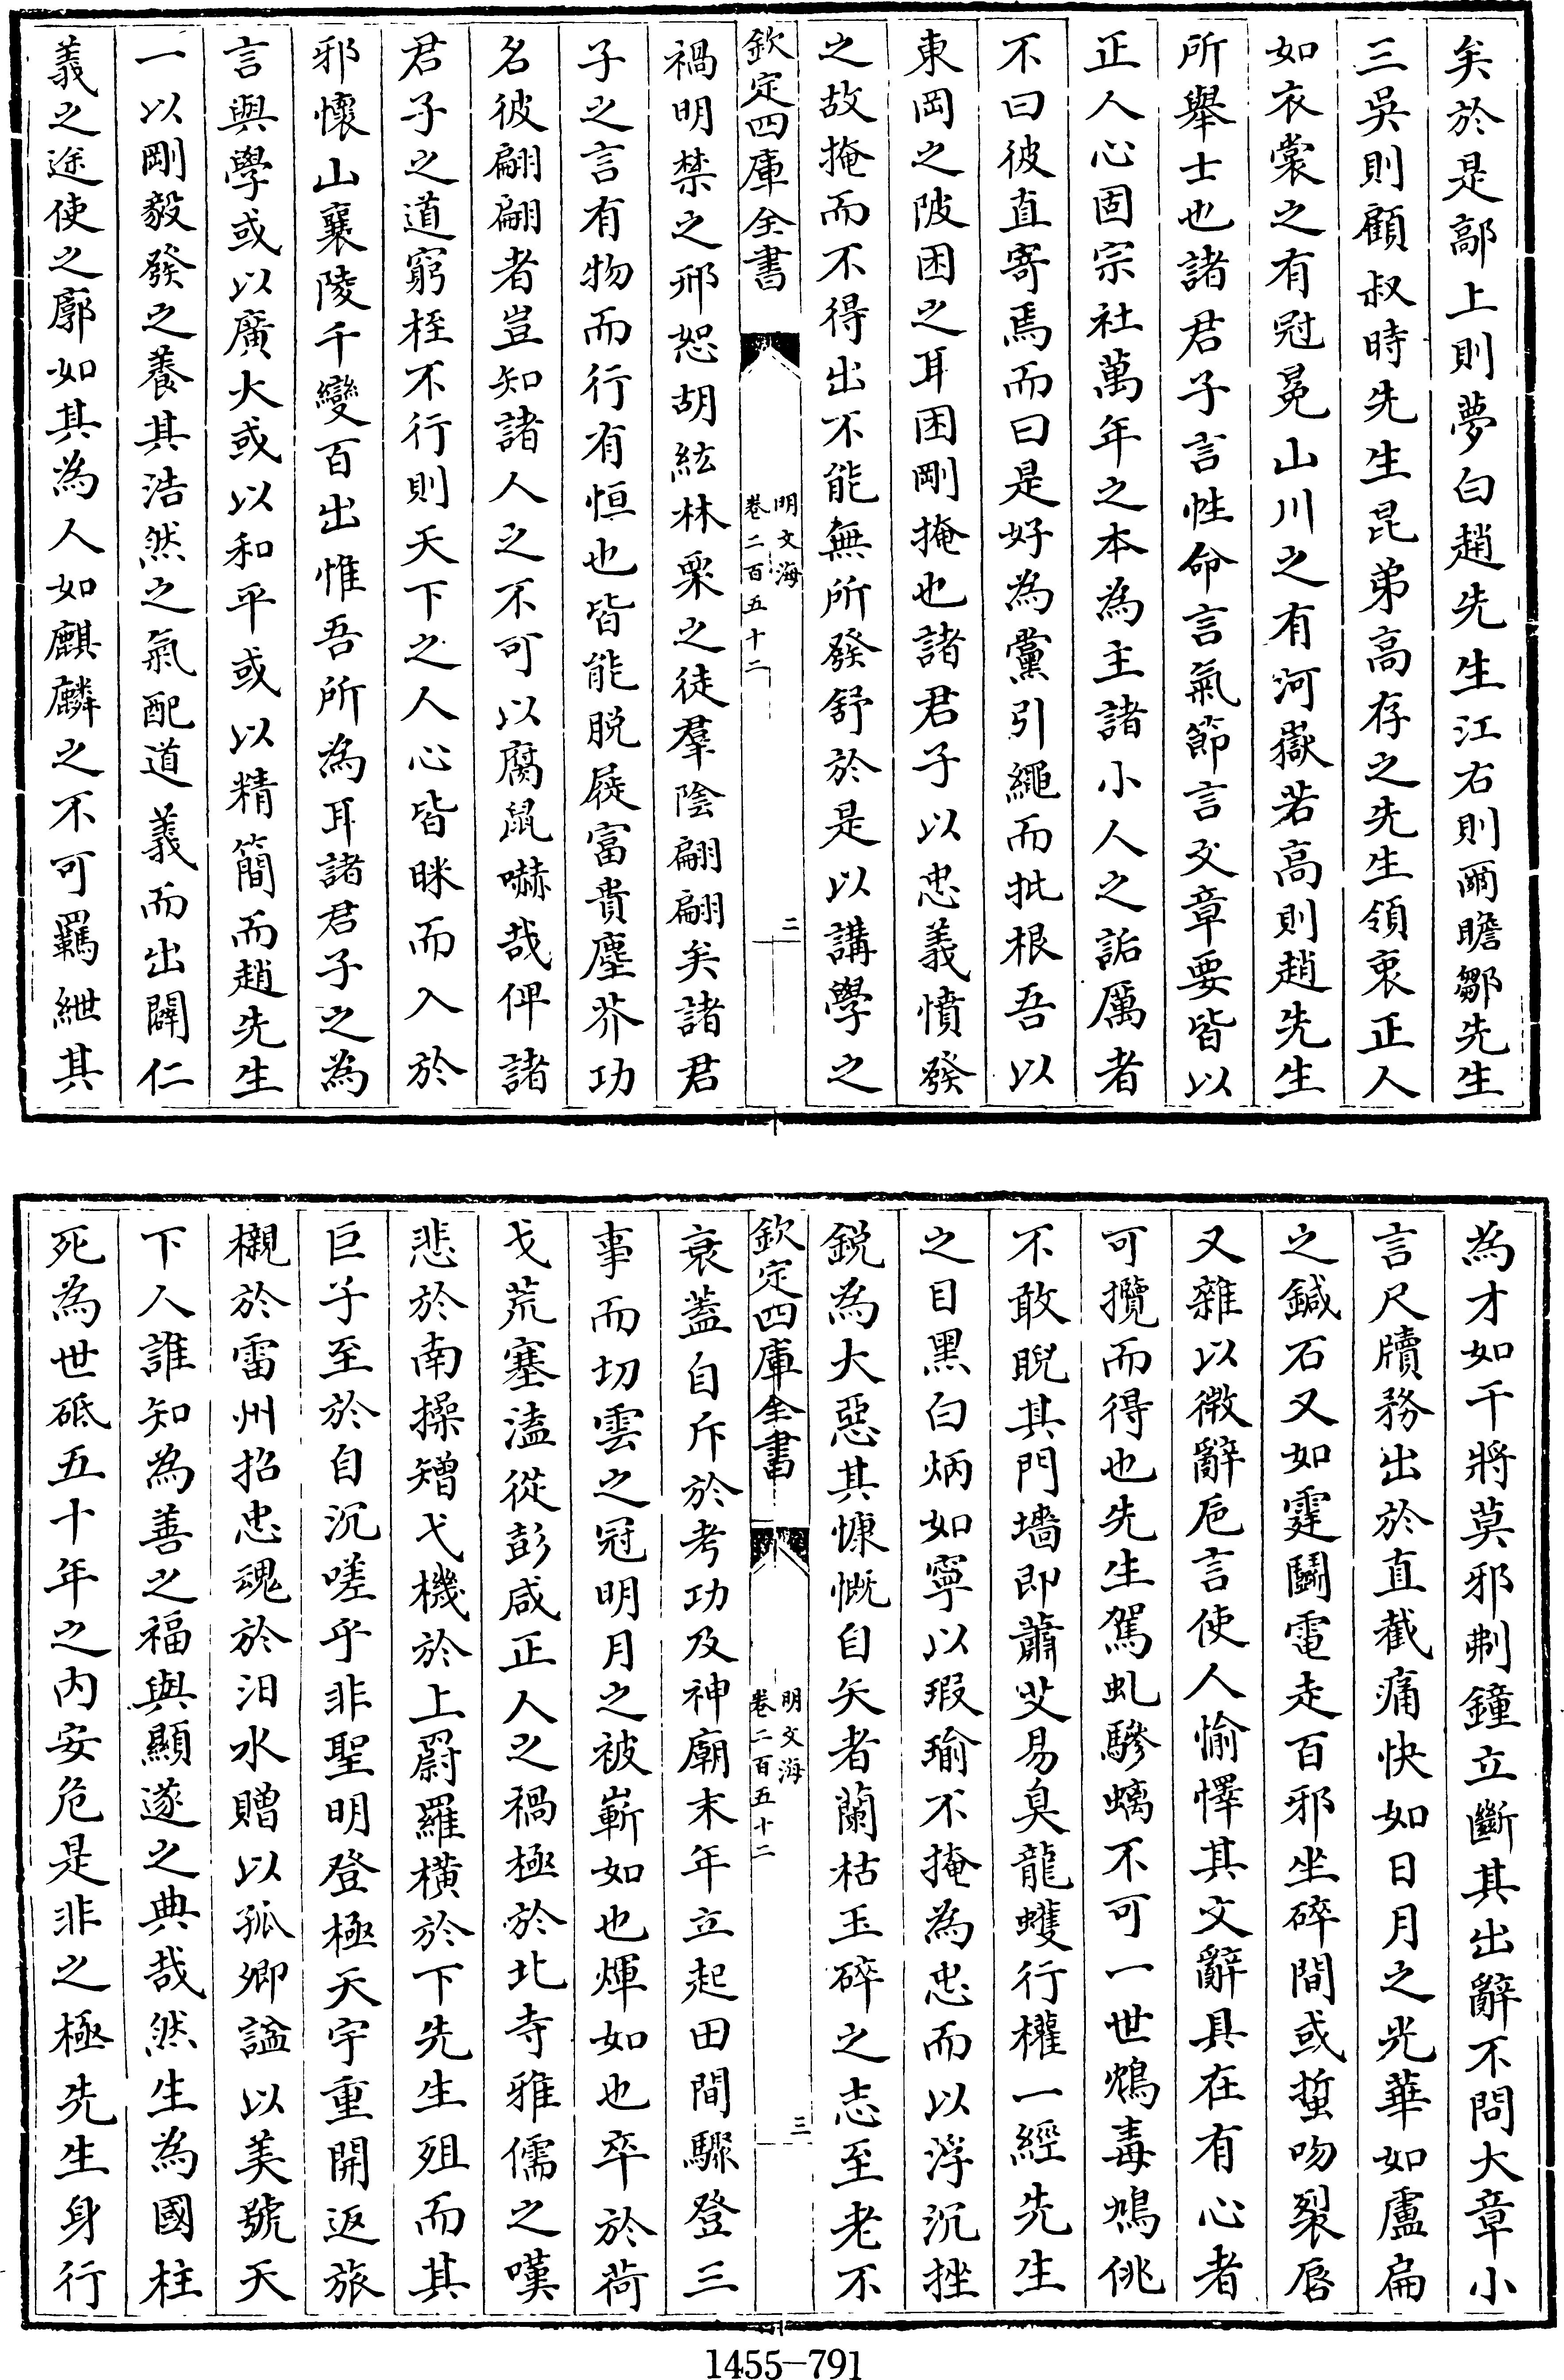 矣於是鄗上則夢白趙先生江右則爾瞻鄒先生
三吳則顧叔時先生昆弟高存之先生領衷正人
如衣裳之有冠冕山川之有河嶽若高則趙先生
所舉士也諸君子言性命言氣節言文章要皆以
正人心固宗社萬年之本為主諸小人之詬厲者
不曰彼直寄焉而曰是好為黨引繩而批根吾以
東岡之陂困之耳困剛掩也諸君子以忠義憤發
之故掩而不得出不能無所發舒於是以講學之
欽定四庫全書
明文海
卷二百五十二
二
禍明禁之邢恕胡紘林栗之徒羣陰翩翩矣諸君
子之言有物而行有恒也皆能脫屣富貴塵芥功
名彼翩翩者豈知諸人之不可以腐鼠嚇哉俾諸
君子之道窮桎不行則天下之人心皆眯而入於
邪懷山襄陵千變百出惟吾所為耳諸君子之為
言與學或以廣大或以和平或以精簡而趙先生
一以剛毅發之養其浩然之氣配道義而出闢仁
義之途使之廓如其為人如麒麟之不可羈紲其
為才如干將莫邪剸鐘立斷其出辭不問大章小
言尺牘務出於直截痛快如日月之光華如盧扁
之鍼石又如霆鬬電走百邪坐碎間或蜇吻裂脣
又雜以微辭巵言使人愉懌其文辭具在有心者
可攬而得也先生駕虬驂螭不可一世鴆毒鳩佻
不敢睨其門墻即蕭艾易臭龍蠖行權一經先生
之目黑白炳如寧以瑕瑜不掩為忠而以浮沉挫
銳為大惡其慷慨自矢者蘭枯玉碎之志至老不
欽定四庫全書
明文海
卷二百五十二
三
衰蓋自斥於考功及神廟末年立起田間驟登三
事而切雲之冠明月之被嶄如也煇如也卒於荷
戈荒塞溘從彭咸正人之禍極於北寺雅儒之嘆
悲於南操矰弋機於上罻羅橫於下先生殂而其
巨子至於自沉嗟乎非聖明登極天宇重開返旅
櫬於雷州招忠魂於汨水贈以孤卿諡以美號天
下人誰知為善之福與顯遂之典哉然生為國柱
死為世砥五十年之內安危是非之極先生身行
1455-791